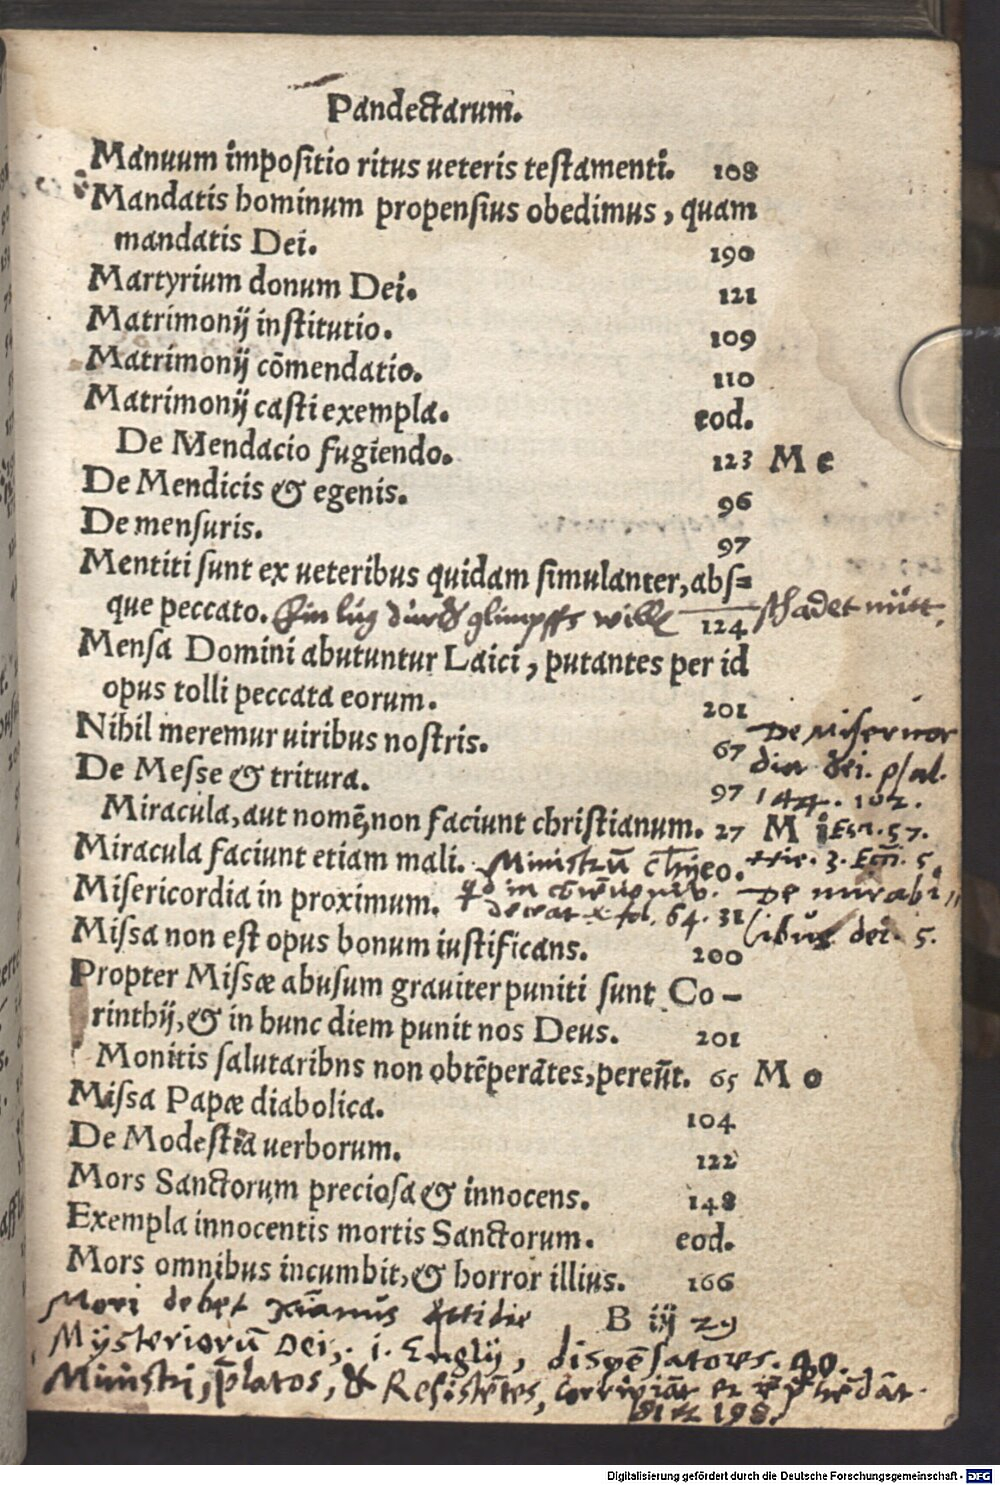 Pandectarum.
Manuum impositio ritus ueteris testamenti. 108
Mandatis hominum propensius obedimus, quam
mandatis Dei. 190
Martyrium donum Dei. 121
Matrimonij institutio. 109
Matrimonij cōmendatio. 110
Matrimonij casti exempla. eod.
De Mendacio fugiendo. 123 Me
De Mendicis & egenis. 96
De mensuris. 97
Mentiti sunt ex ueteribus quidam simulanter, abs=
que peccato. Ein lüg durch glimpffs wille 124 schadet nütt.
Mensa Domini abutuntur Laici, putantes per id
opus tolli peccata eorum. 201
Nihil meremur uiribus nostris. 67
De Misericor
dia dei. psal.
De Messe & tritura. 97
144. 102.
Miracula, aut nomē, non faciunt christianum. 27 Mi Esa. 57.
Miracula faciunt etiam mali. Ministrū
3. 5
Misericordia in proximum. fol. 64. 31
De mirabi
libus dei. 5.
Missa non est opus bonum iustificans. 200
Propter Missæ abusum grauiter puniti sunt Co-
rinthij, & in hunc diem punit nos Deus. 201
Monitis salutaribns non obtēperātes, pereūt. 65 Mo
Missa Papæ diabolica. 104
De Modestia uerborum. 122
Mors Sanctorum preciosa & innocens. 148
Exempla innocentis mortis Sanctorum. eod.
Mors omnibus incumbit, & horror illius. 166
Mori debet 29
B iij
Mysteriorū Dei, .i. Euglij, dispēsatores. 40.
Ministri, p̄latos, & Resistētes, corripiāt et
81 198.